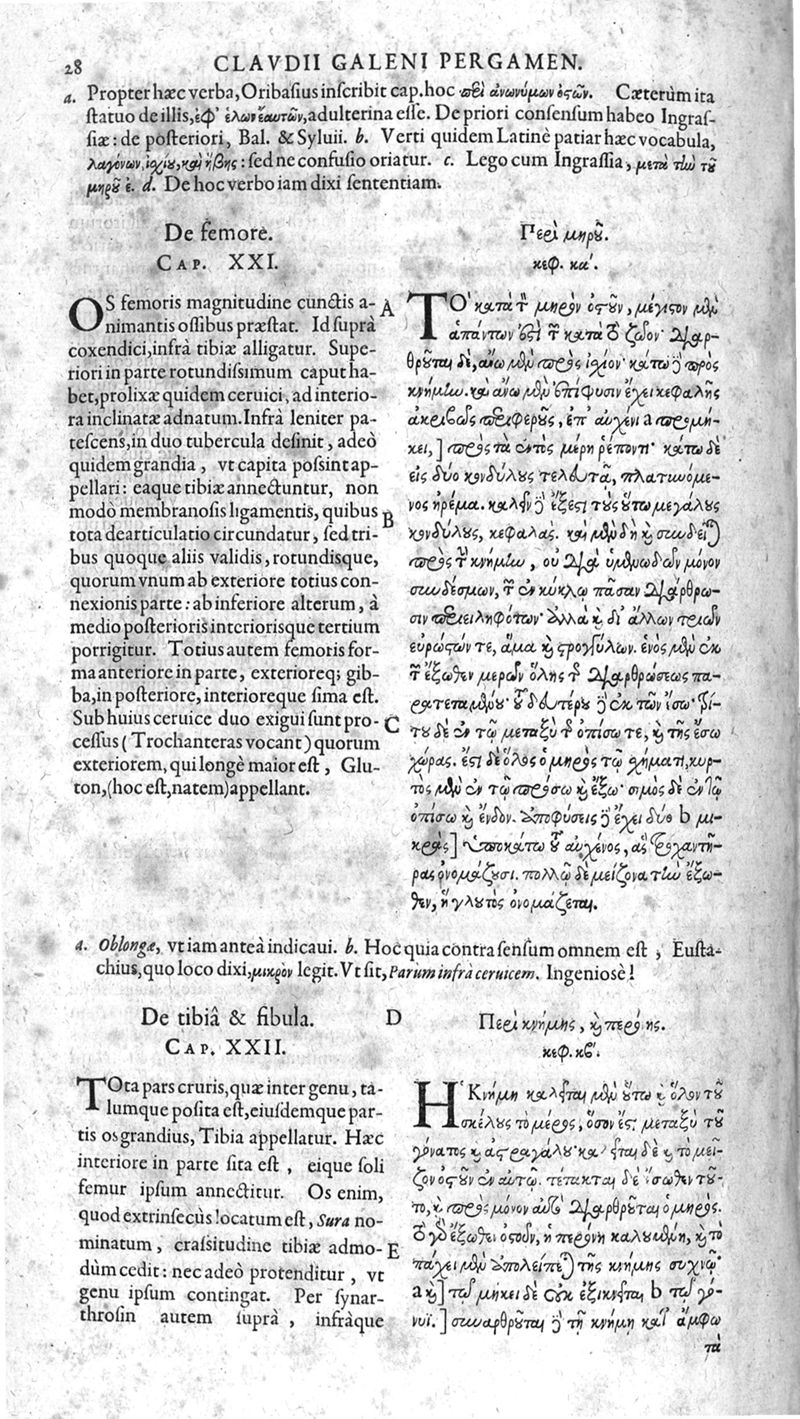 28
CLAVDII GALENI PERGAMEN.
a. Propter hæc verba, Oribasius inscribit cap. hoc περὶ ἀνωνύμων ὀστῶν. Cæterùm ita
statuo de illis, ἐφ' adulterina esse. De priori consensum habeo Ingras-
siæ: de posteriori, Bal. & Syluii. b. Verti quidem Latinè patiar hæc vocabula,
λαγόνων, ἰσχίου, καὶ ἥβης: sed ne confusio oriatur. c. Lego cum Ingrassia, μετὰ τὴν τοῦ
μηροῦ d. De hoc verbo iam dixi sententiam.
De femore.
CAP. XXI.
OS femoris magnitudine cunctis a-
nimantis ossibus præstat. Id suprà
coxendici, infrà tibiæ alligatur. Supe-
riori in parte rotundissimum caput ha-
bet, prolixæ quidem ceruici, ad interio-
ra inclinatæ adnatum. Infrà leniter pa-
tescens, in duo tubercula desinit, adeò
quidem grandia, vt capita possint ap-
pellari: eaque tibiæ annectuntur, non
modò membranosis ligamentis, quibus
tota dearticulatio circundatur, sed tri-
bus quoque aliis validis, rotundisque,
quorum vnum ab exteriore totius con-
nexionis parte: ab inferiore alterum, à
medio posterioris interiorisque tertium
porrigitur. Totius autem femoris for-
ma anteriore in parte, exterioreq; gib-
ba, in posteriore, interioreque sima est.
Sub huius ceruice duo exigui sunt pro-
cessus (Trochanteras vocant) quorum
exteriorem, qui longè maior est, Glu-
ton, (hoc est, natem) appellant.
A
B
C
Περὶ μηροῦ.
κεφ. κα΄.
ΤΟ' κατὰ τὸν μηρὸν ὀστοῦν, μέγιστον μὲν
ἁπάντων ἐστὶ τῶν κατὰ τὸ ζῶον· διαρ-
θροῦται δὲ, ἄνω μὲν πρὸς ἰσχίον· κάτω δὲ πρὸς
κνήμην. καὶ ἄνω μὲν ἐπίφυσιν ἔχει κεφαλῆς
ἀκριβῶς περιφεροῦς, ἐπ' αὐχένι a προμή-
κει, ] πρὸς τὰ ἐντὸς μέρη ῥέποντι· κάτω δὲ
εἰς δύο κονδύλους τελευτᾷ, πλατυνόμε-
νος ἠρέμα. καλεῖν δὲ ἔξεστι τοὺς οὕτω μεγάλους
κονδύλους, κεφαλάς. καὶ μὲν δὴ καὶ συνδεῖται
πρὸς τὴν κνήμην, οὐ διὰ ὑμενωδῶν μόνον
συνδέσμων, τῶν ἐν κύκλῳ πᾶσαν διάρθρω-
σιν περιειληφότων· ἀλλὰ καὶ δι' ἄλλων τριῶν
εὐρώστων τε, ἅμα καὶ στρογγύλων. ἑνὸς μὲν ἐκ
τῶν ἔξωθεν μερῶν ὅλης τῆς διαρθρώσεως πα-
ρατεταμένου· τοῦ δευτέρου δὲ ἐκ τῶν ἔσω· τρί-
του δὲ ἐν τῷ μεταξὺ τῆς ὀπίσω τε, καὶ τῆς ἔσω
χώρας. ἔστι δὲ ὅλος ὁ μηρὸς τῷ σχήματι, κυρ-
τὸς μὲν ἐν τῷ πρόσω καὶ ἔξω· σιμὸς δὲ ἐν τῷ
ὀπίσω καὶ ἔνδον. ἀποφύσεις δὲ ἔχει δύο b μι-
κρὰς] ὑποκάτω τοῦ αὐχένος, ἃς τροχαντῆ-
ρας ὀνομάζουσι. πολλῷ δὲ μείζονα τὴν ἔξω-
θεν, ἣ γλουτὸς ὀνομάζεται.
a. Oblongæ, vt iam anteà indicaui. b. Hoc quia contra sensum omnem est, Eusta-
chius, quo loco dixi, μικρὸν legit. Vt sit, Parùm infrà ceruicem. Ingeniosè!
De tibiâ & fibula.
CAP. XXII.
TOta pars cruris, quæ inter genu, ta-
lumque posita est, eiusdemque par-
tis os grandius, Tibia appellatur. Hæc
interiore in parte sita est, eique soli
femur ipsum annectitur. Os enim,
quod extrinsecùs locatum est, Sura no-
minatum, crassitudine tibiæ admo-
dùm cedit: nec adeò protenditur, vt
genu ipsum contingat. Per synar-
throsin autem suprà, infràque
D
E
Περὶ κνήμης, καὶ περόνης.
κεφ. κβ΄.
Ἡ Κνήμη καλεῖται μὲν οὕτω καὶ ὅλον τοῦ
σκέλους τὸ μέρος, ὅσον ἐστὶ μεταξὺ τοῦ
γόνατος καὶ ἀστραγάλου· καλεῖται δὲ καὶ τὸ μεῖ-
ζον ὀστοῦν ἐν αὐτῷ. τέτακται δὲ ἔσωθεν τοῦ-
το, καὶ πρὸς μόνον αὐτὸ διαρθροῦται ὁ μηρός.
τὸ γὰρ ἔξωθεν ὀστοῦν, ἡ περόνη καλουμένη, καὶ τὸ
πάχει μὲν ἀπολείπεται τῆς κνήμης συχνῷ·
a καὶ] τῷ μήκει δὲ οὐκ ἐξικνεῖται b τῷ γό-
νυϊ. ] συναρθροῦται δὲ τῇ κνήμῃ κατ' ἄμφω
τὰ